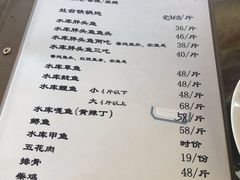 灶台铁锅炖 RMB/斤
水库胖头鱼 36/斤
水库胖头鱼头 45/斤
水库胖头鱼两吃 香炖鱼头、余鱼丸 38/斤
水库胖头鱼三吃 40/斤
水库草鱼 48/斤
水库鲶鱼 48/斤
水库鲤鱼 小4斤以下 48/斤
大4斤以上 68/斤
水库嘎鱼(黄辣丁) 58/斤
鲫鱼 58/斤
水库甲鱼 时价
五花肉 19/份
排骨 48/斤
柴鸡